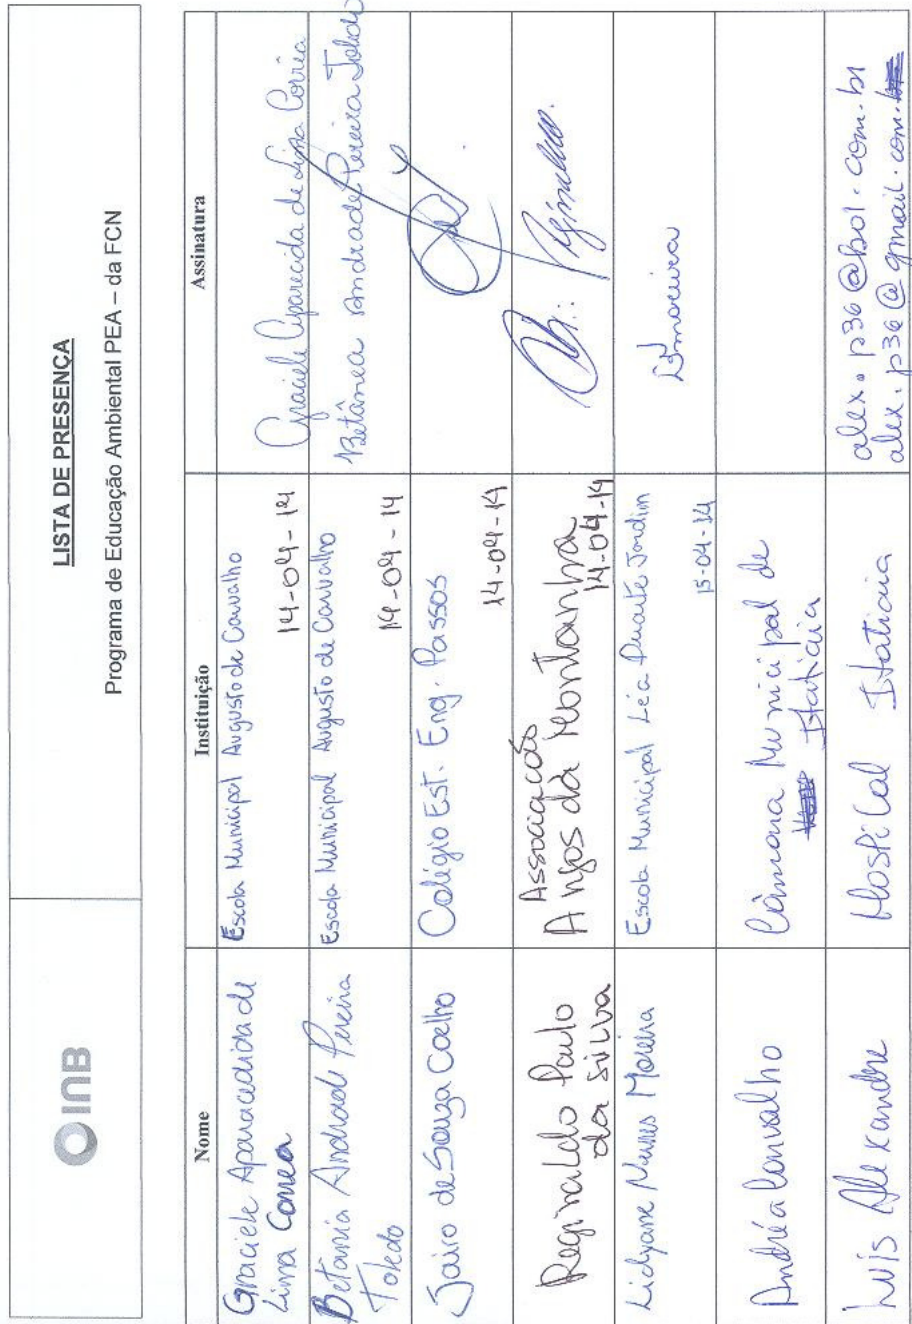 INB
LISTA DE PRESENÇA
Programa de Educação Ambiental PEA – da FCN
Nome
Instituição
Assinatura
Graciele Aparacedida de
Lima Correa
Escola Municipal Augusto de Carvalho
14-04-14
Graciele Aparecida de Lima Corrêa
Betânia Andrade Pereira
Toledo
Escola Municipal Augusto de Carvalho
14-04-14
Betânia Andrade Pereira Toledo
Jairo de Souza Coelho
Colégio Est. Eng. Passos
14-04-14
Reginaldo Paulo
da Silva
Associação
Anjos da Montanha
14-04-14
Lidyane Nunes Moreira
Escola Municipal Léa Duarte Jardim
15-04-14
LBmoreira
Andréa Carvalho
Câmara Municipal de
Itatiaia
Luis Alexandre
Hospital Itatiaia
alex.p36@bol.com.br
alex.p36@gmail.com